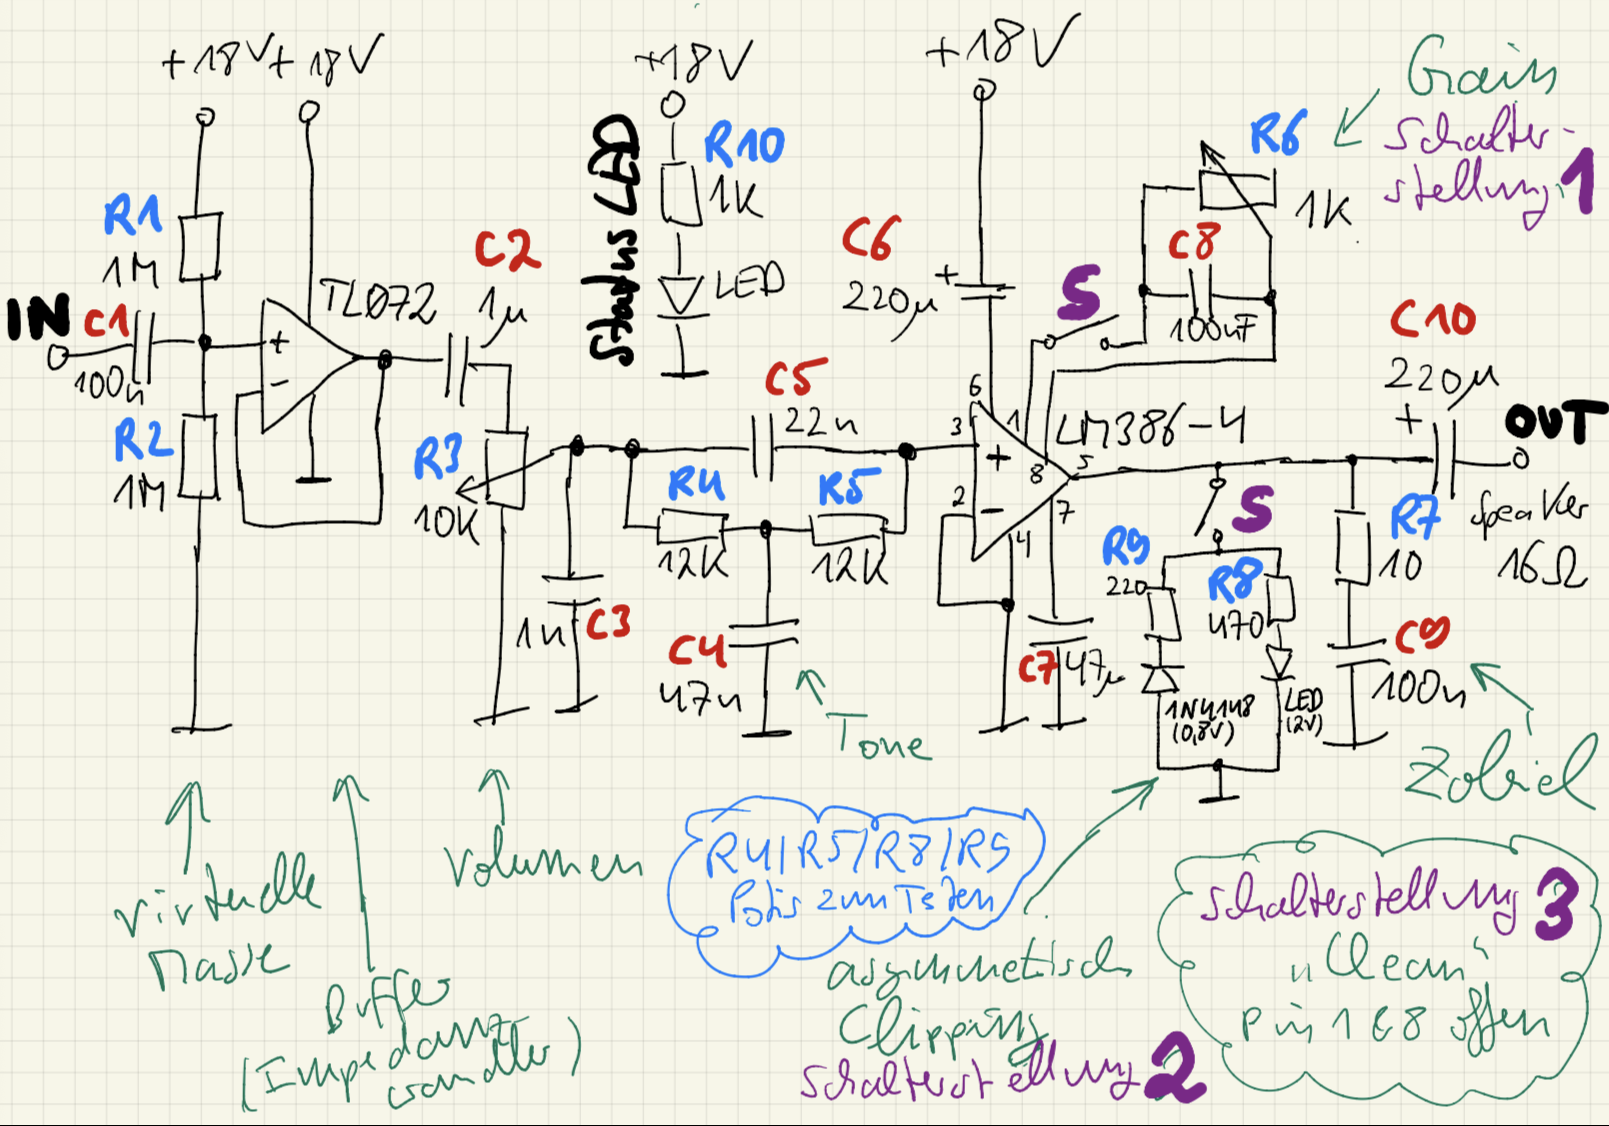 +18V +18V
+18V
+18V
Gain
Schalter-
stellung 1
R6
1K
C8
100nF
S
R10
1K
Status LED
LED
R1
1M
IN
C1
100n
TL072
+
-
C2
1µ
C6
+
220µ
R2
1M
R3
10K
C5
22n
R4
12K
R5
12K
1n
C3
C4
47n
Tone
6
3
1
+
8
LM386-4
5
2
-
7
4
C7
47µ
C10
220µ
+
OUT
Speaker
16Ω
S
R9
220
R8
470
1N4148
(0,8V)
LED
(2V)
R7
10
C9
100n
Zobel
virtuelle
Masse
Buffer
(Impedanz
wandler)
Volumen
R4/R5/R8/R9
Potis zum Testen
asymmetrisch
Clipping
Schalterstellung 2
Schalterstellung 3
"Clean"
Pin 1 & 8 offen